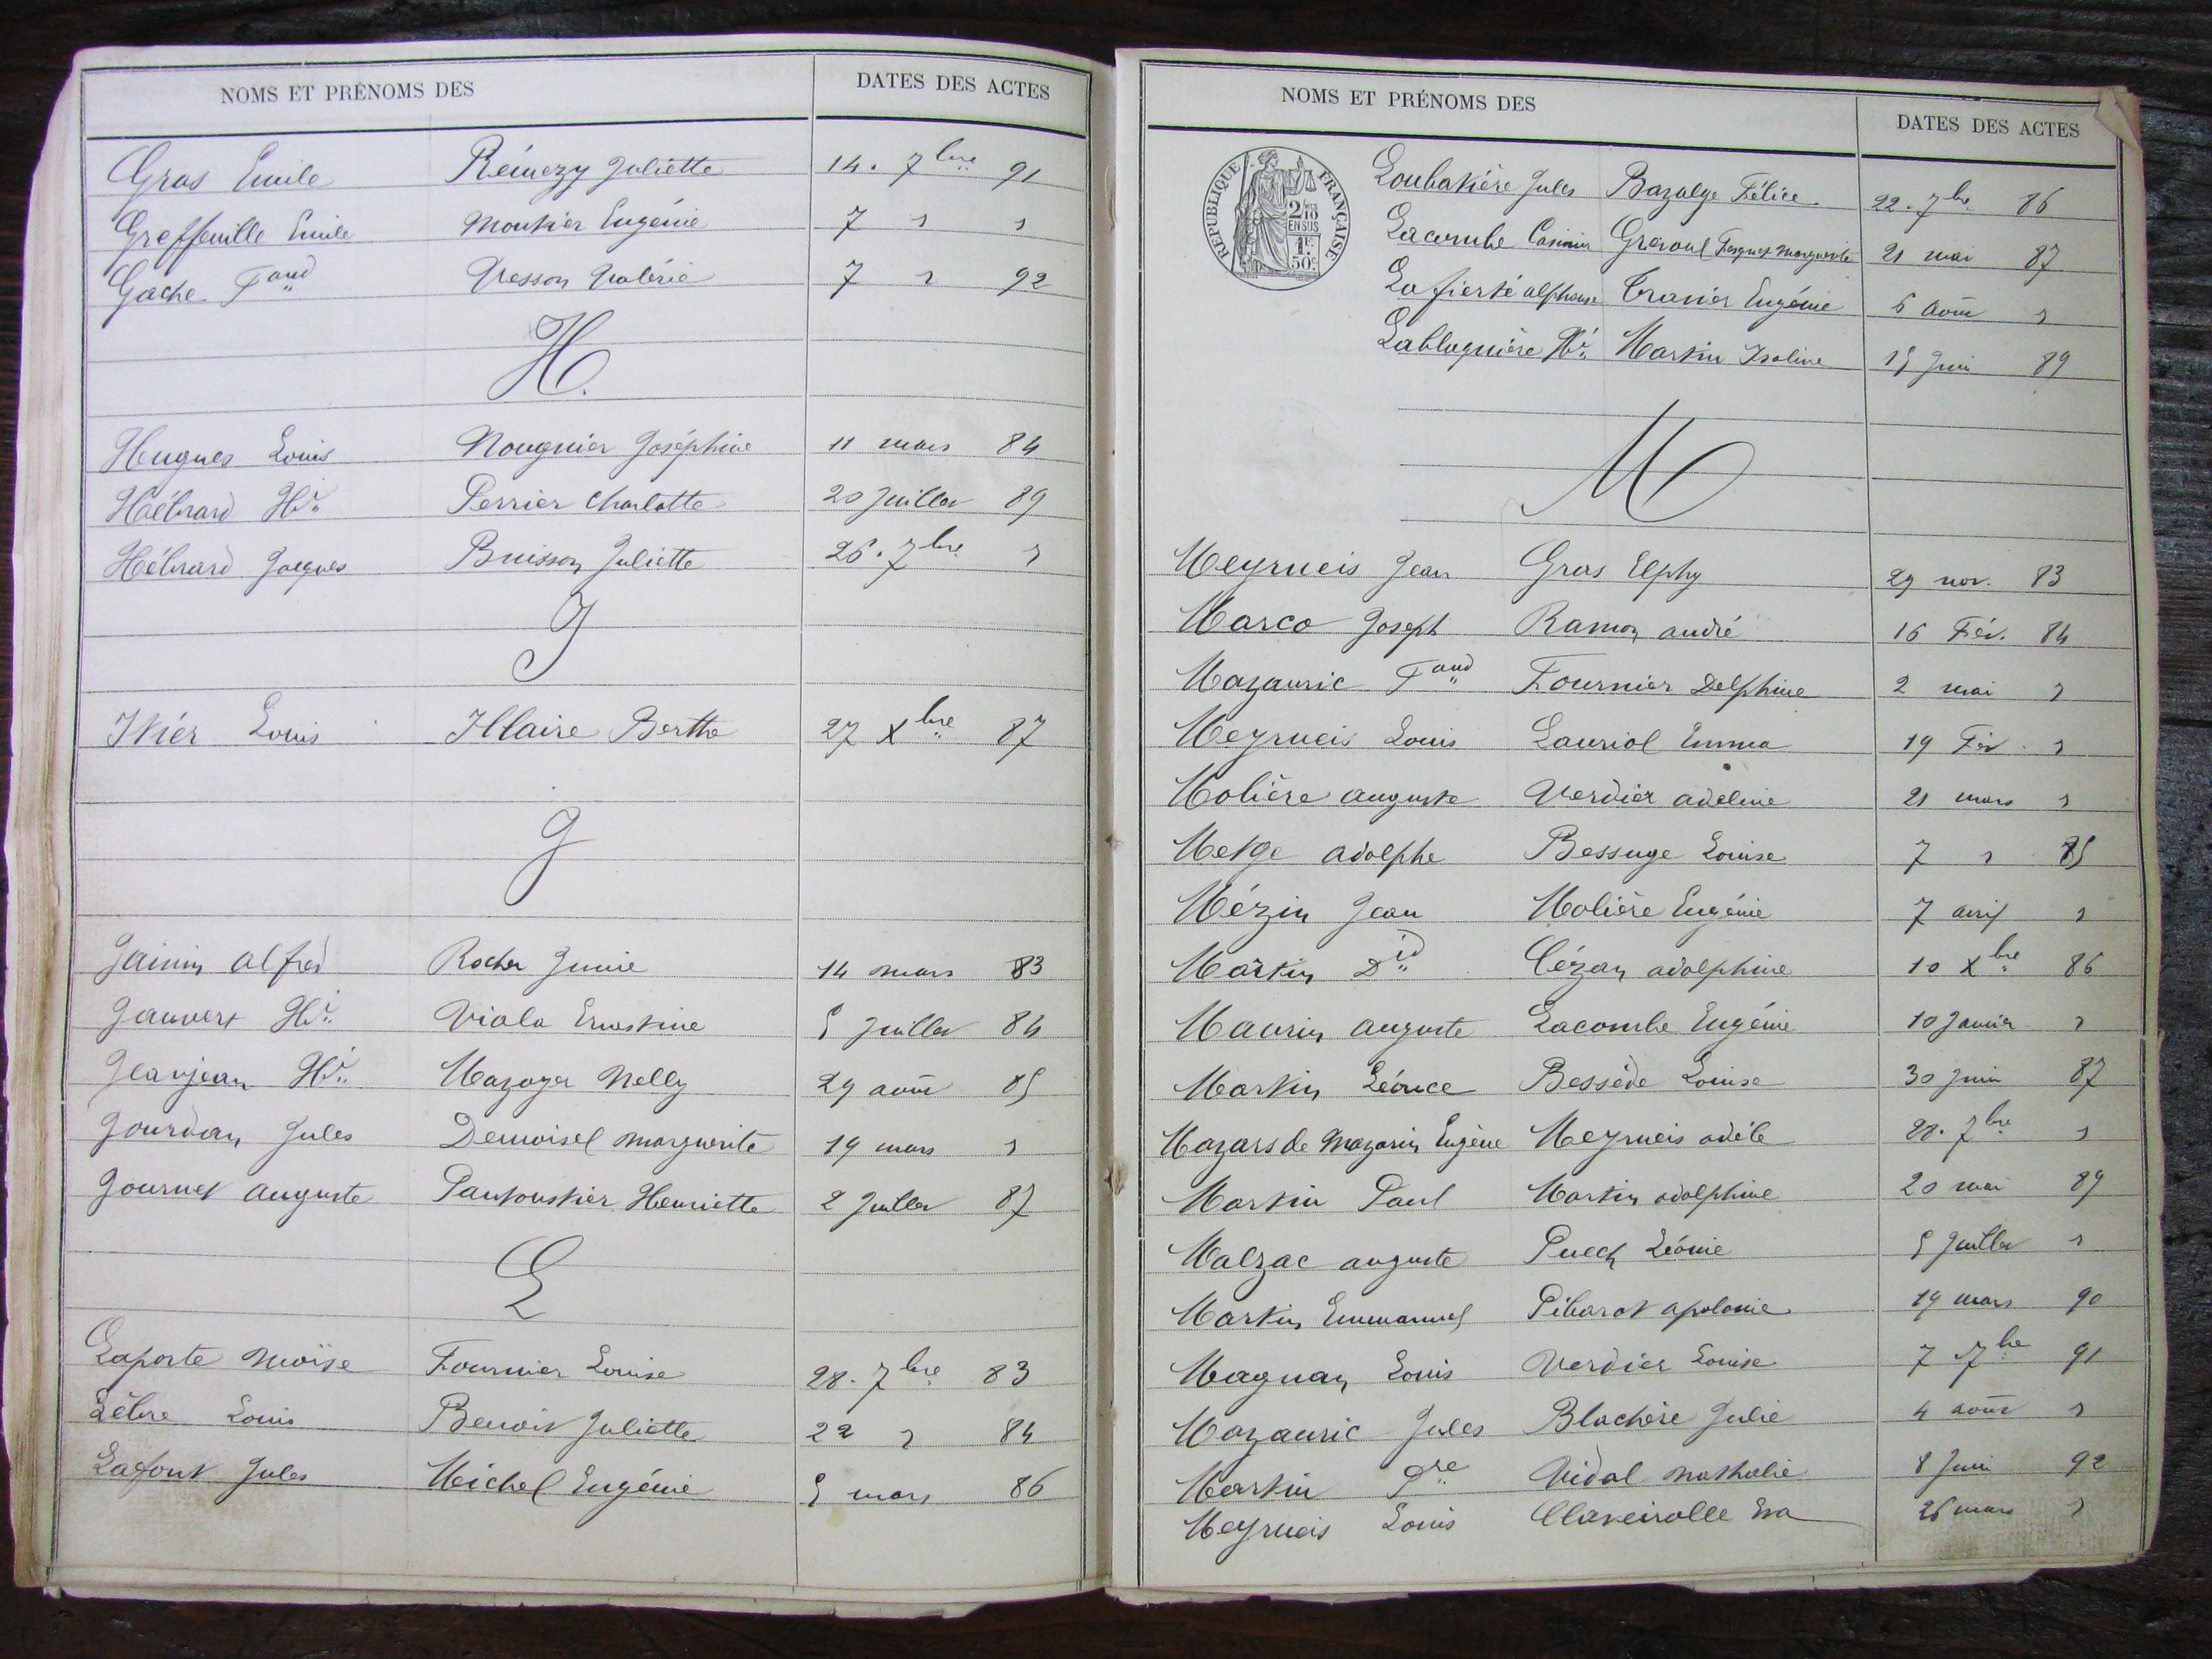 NOMS ET PRÉNOMS DES DATES DES ACTES
Gras Emile Rémézy Juliette 14. 7bre 91
Greffeuille Emile Moutier Eugénie 7 " "
Gache Fand Vesson Valérie 7 " 92
H.
Hugues Louis Nougnier Joséphine 11 mars 84
Hébrard Hri Perrier Charlotte 20 Juillet 89
Hébrard Jacques Buisson Juliette 26. 7bre "
I
Itiér Louis Illaire Berthe 27 Xbre 87
J
Alfred Rocher Junie 14 mars 83
Jauvert Hri Viala Ernestine 5 Juillet 84
Jeanjean Hri Mazoyer Nelly 29 août 85
Jourdan Jules Demoisel Marguerite 19 mars "
Journet Auguste Pantoustier Henriette 2 Juillet 87
L
Laporte Moïse Fournier Louise 28. 7bre 83
Lèbre Louis Benoit Juliette 22 " 84
Lafont Jules Michel Eugénie 5 mars 86
NOMS ET PRÉNOMS DES DATES DES ACTES
RÉPUBLIQUE FRANÇAISE
2/10
EN SUS
1F.
50c
Loubatière Jules Bazalge Félice 22. 7bre 86
Lacombe Casimir Marguerite 21 mai 87
Lafierté alphonse Tranier Eugénie 6 août "
Lablaquière Hri Martin Isoline 15 Juin 89
M
Meyrueis Jean Gras Elphy 29 nov. 83
Marco Joseph Ramon andré 16 Fév. 84
Mazauric Fand Fournier Delphine 2 mai "
Meyrueis Louis Lauriol Emma 19 Fév. "
Molière auguste Verdier adeline 21 mars "
Metge adolphe Bessuge Louise 7 " 85
Mézin Jean Molière Eugénie 7 avril "
Martin Did Cézan adolphine 10 Xbre 86
Maurin auguste Lacombe Eugénie 10 Janvier "
Martin Léonce Bessède Louise 30 Juin 87
Mazars de Mazarin Eugène Meyrueis adèle 28. 7bre "
Martin Paul Martin adolphine 20 mai 89
Malzac auguste Puech Léonie 5 Juillet "
Martin Emmanuel Pibarot apolonie 19 mars 90
Magnan Louis Verdier Louise 7 7bre 91
Mazauric Jules Blachère Julie 4 août "
Martin Pre Vidal Nathalie 8 Juin 92
Meyrueis Louis Claveirolle Eva 26 mars "